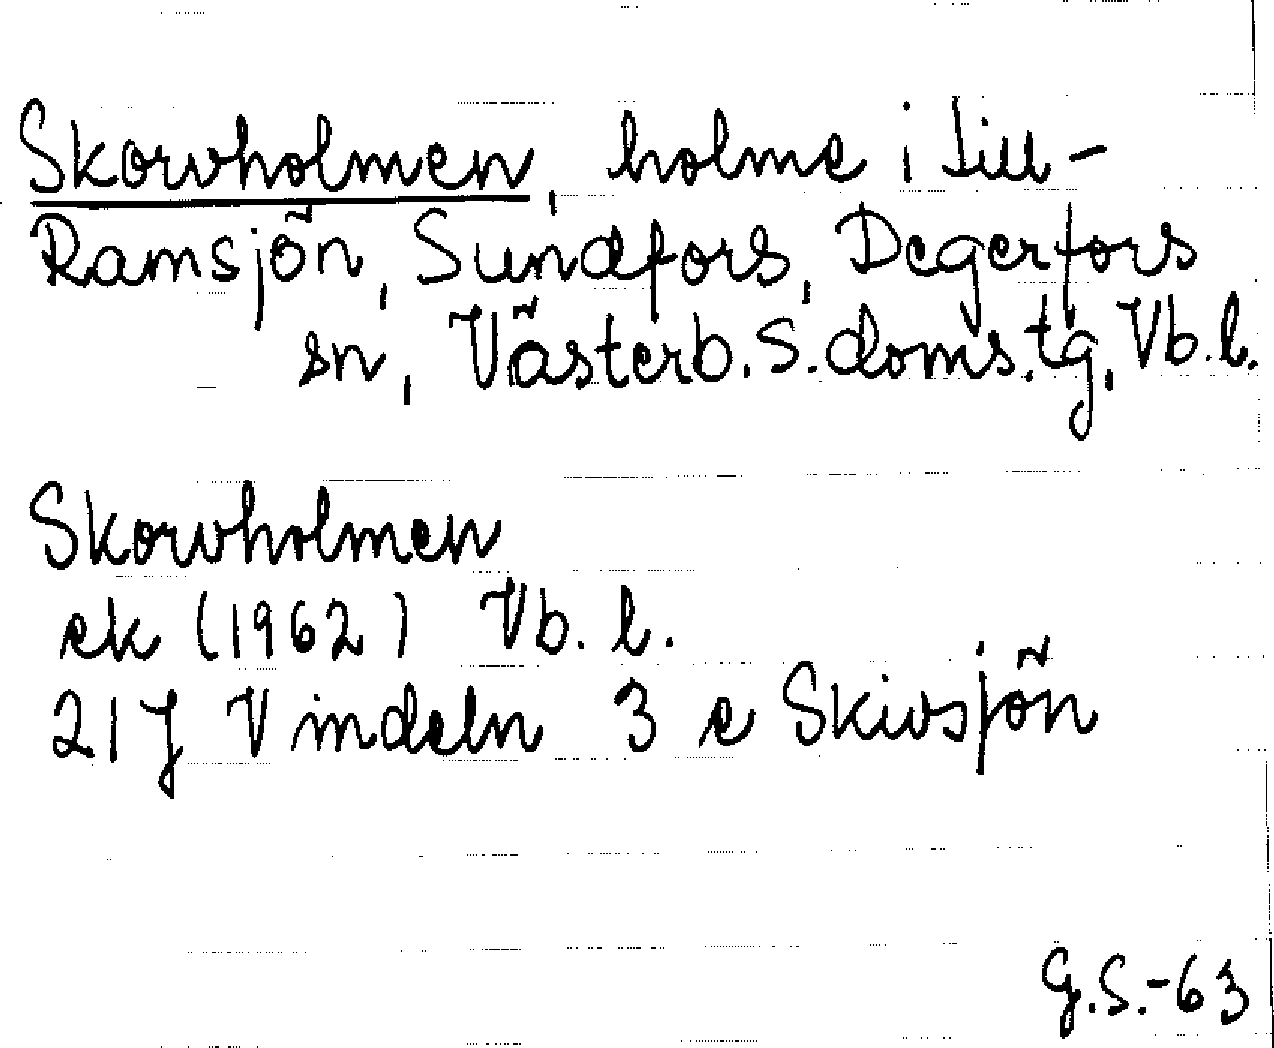 Skorvholmen, holme i Lill-
Ramsjön, Sundfors, Degerfors
sn, Västerb. s. doms.tg, Vb. l.
Skorvholmen
ek (1962) Vb. l.
21 J Vindeln 3 e Skivsjön
G.S.-63